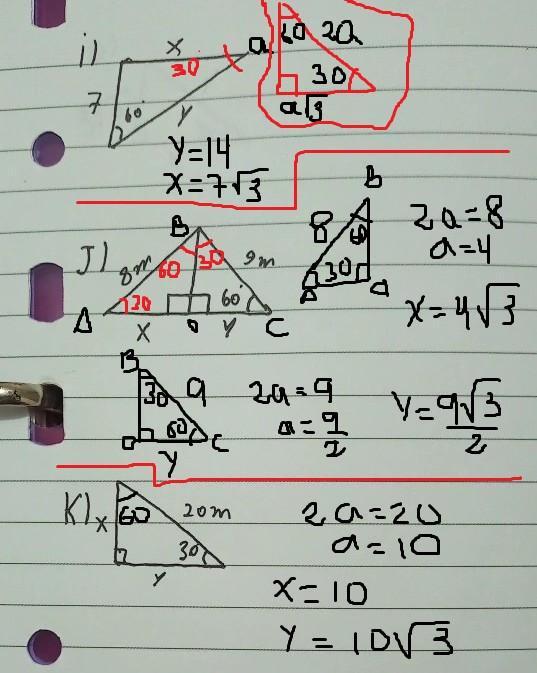 i) x 30 a 60 2a
7 60 y 30
a√3
y=14
x=7√3
J) B 8m 60 30 9m
A 30 60 C
x D y
B 8 60
30
A D
2a=8
a=4
x=4√3
B 30 9
60 C
D y
2a=9
a=9/2
y=9√3/2
K) x 60 20m
30
y
2a=20
a=10
x=10
y=10√3